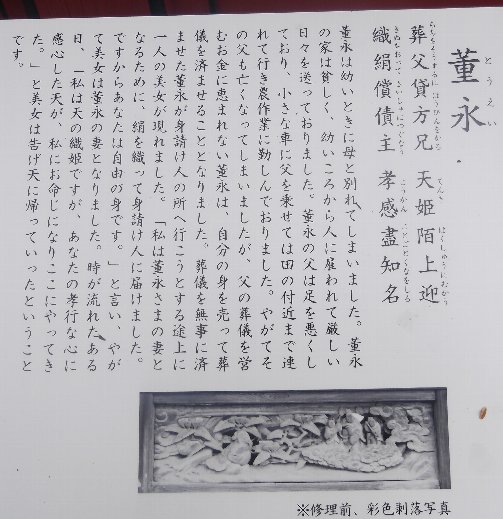 董永
とうえい
葬父貸方兄 天姫陌上迎
織絹償債主 孝感盡知名
董永は幼いときに母と別れてしまいました。董永
の家は貧しく、幼いころから人に雇われて厳しい
日々を送っておりました。董永の父は足を悪くし
ており、小さな車に父を乗せては田の付近まで連
れて行き農作業に勤しんでおりました。やがてそ
の父も亡くなってしまいましたが、父の葬儀を営
むお金に恵まれない董永は、自分の身を売って葬
儀を済ませることとなりました。葬儀を無事に済
ませた董永が身請け人の所へ行こうとする途上に
一人の美女が現れました。「私は董永さまの妻と
なるために、絹を織って身請け人に届けました。
ですからあなたは自由の身です。」と言い、やが
て美女は董永の妻となりました。時が流れたある
日、「私は天の織姫ですが、あなたの孝行な心に
感心した天が、私にお命じになりここにやってき
た。」と美女は告げ天に帰っていったということ
です。
※修理前、彩色剥落写真